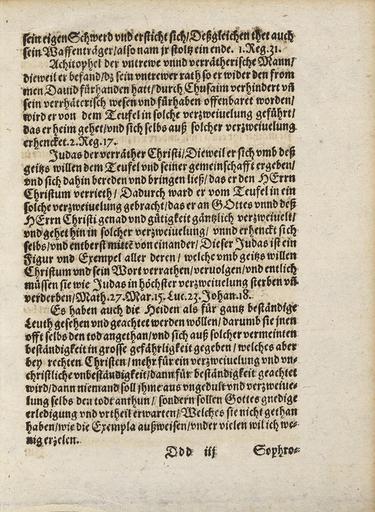 sein eigen Schwerd vnd ersticht sich/ Deßgleichen thet auch
sein Waffenträger/ also nam jr stoltz ein ende. 1. Reg. 31.
Achitophel der vntrewe vnnd verrätherische Mann/
dieweil er befand/ dz sein vntrewer rath so er wider den from
men Dauid fürhanden hatt/ durch Chusaim verhindert vñ
sein verrhäterisch wesen vnd fürhaben offenbaret worden/
wird er von dem Teufel in solche verzweiuelung geführt/
das er heim gehet/ vnd sich selbs auß solcher verzweiuelung
erhencket. 2. Reg. 17.
Judas der verräther Christi/ Dieweil er sich vmb deß
geitzs willen dem Teufel vnd seiner gemeinschafft ergeben/
vnd sich dahin bereden vnd bringen ließ/ das er den HErrn
Christum verrieth/ Dadurch ward er vom Teufel in ein
solche verzweiuelung gebracht/ das er an GOttes vnnd deß
HErrn Christi genad vnd gütigkeit gäntzlich verzweiuelt/
vnd gehet hin in solcher verzweiuelung/ vnnd erhenckt sich
selbs/ vnd entberst mittē von einander/ Dieser Judas ist ein
Figur vnd Exempel aller deren/ welche vmb geitzs willen
Christum vnd sein Wort verrathen/ veruolgen/ vnd entlich
müssen sie wie Judas in höchster verzweiuelung sterben vñ
verderben/ Math. 27. Mar. 15. Luc. 23. Johan. 18.
Es haben auch die Heiden als für gantz beständige
Leuth gesehen vnd geachtet werden wöllen/ darumb sie jnen
offt selbs den tod angethan/ vnd sich auß solcher vermeinten
beständigkeit in grosse gefährligkeit gegeben/ welches aber
bey rechten Christen/ mehr für ein verzweiuelung vnd vn-
christliche vnbeständigkeit/ dann für beständigkeit geachtet
wird/ dann niemand soll jhme aus vngedult vnd verzweiue-
lung selbs den todt anthun/ sondern sollen Gottes gnedige
erledigung vnd vrtheil erwarten/ Welches sie nicht gethan
haben/ wie die Exempla außweisen/ vnder vielen wil ich we-
nig erzelen.
Ddd iij Sophro-